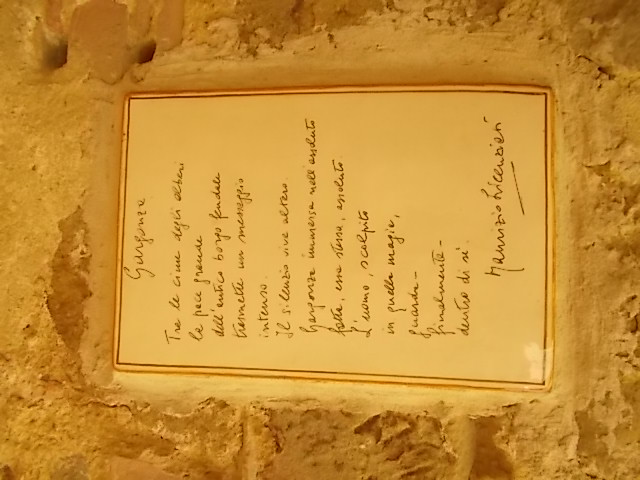 Gargonza
Tra le cime degli alberi
la pace grande
dell'antico borgo feudale
trasmette un messaggio
intenso.
Il silenzio vive altero.
Gargonza immersa nell'assoluto
fatta, essa stessa, assoluto
L'uomo, scolpito
in quella magia,
guarda -
finalmente -
dentro di sé.
Maurizio